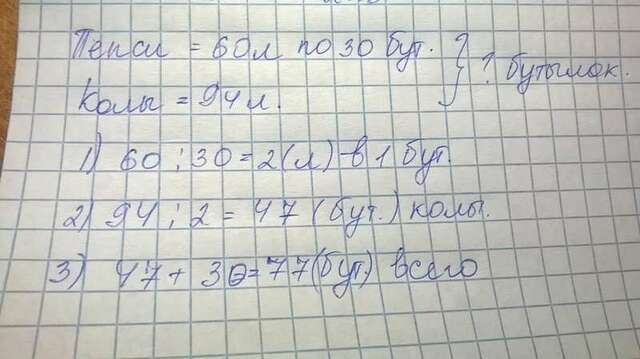 Пепси = 60л по 30 бут. } ? бутылок.
Колы = 94 л.
1) 60 : 30 = 2 (л) - в 1 бут.
2) 94 : 2 = 47 (бут.) колы.
3) 47 + 30 = 77 (бут) всего